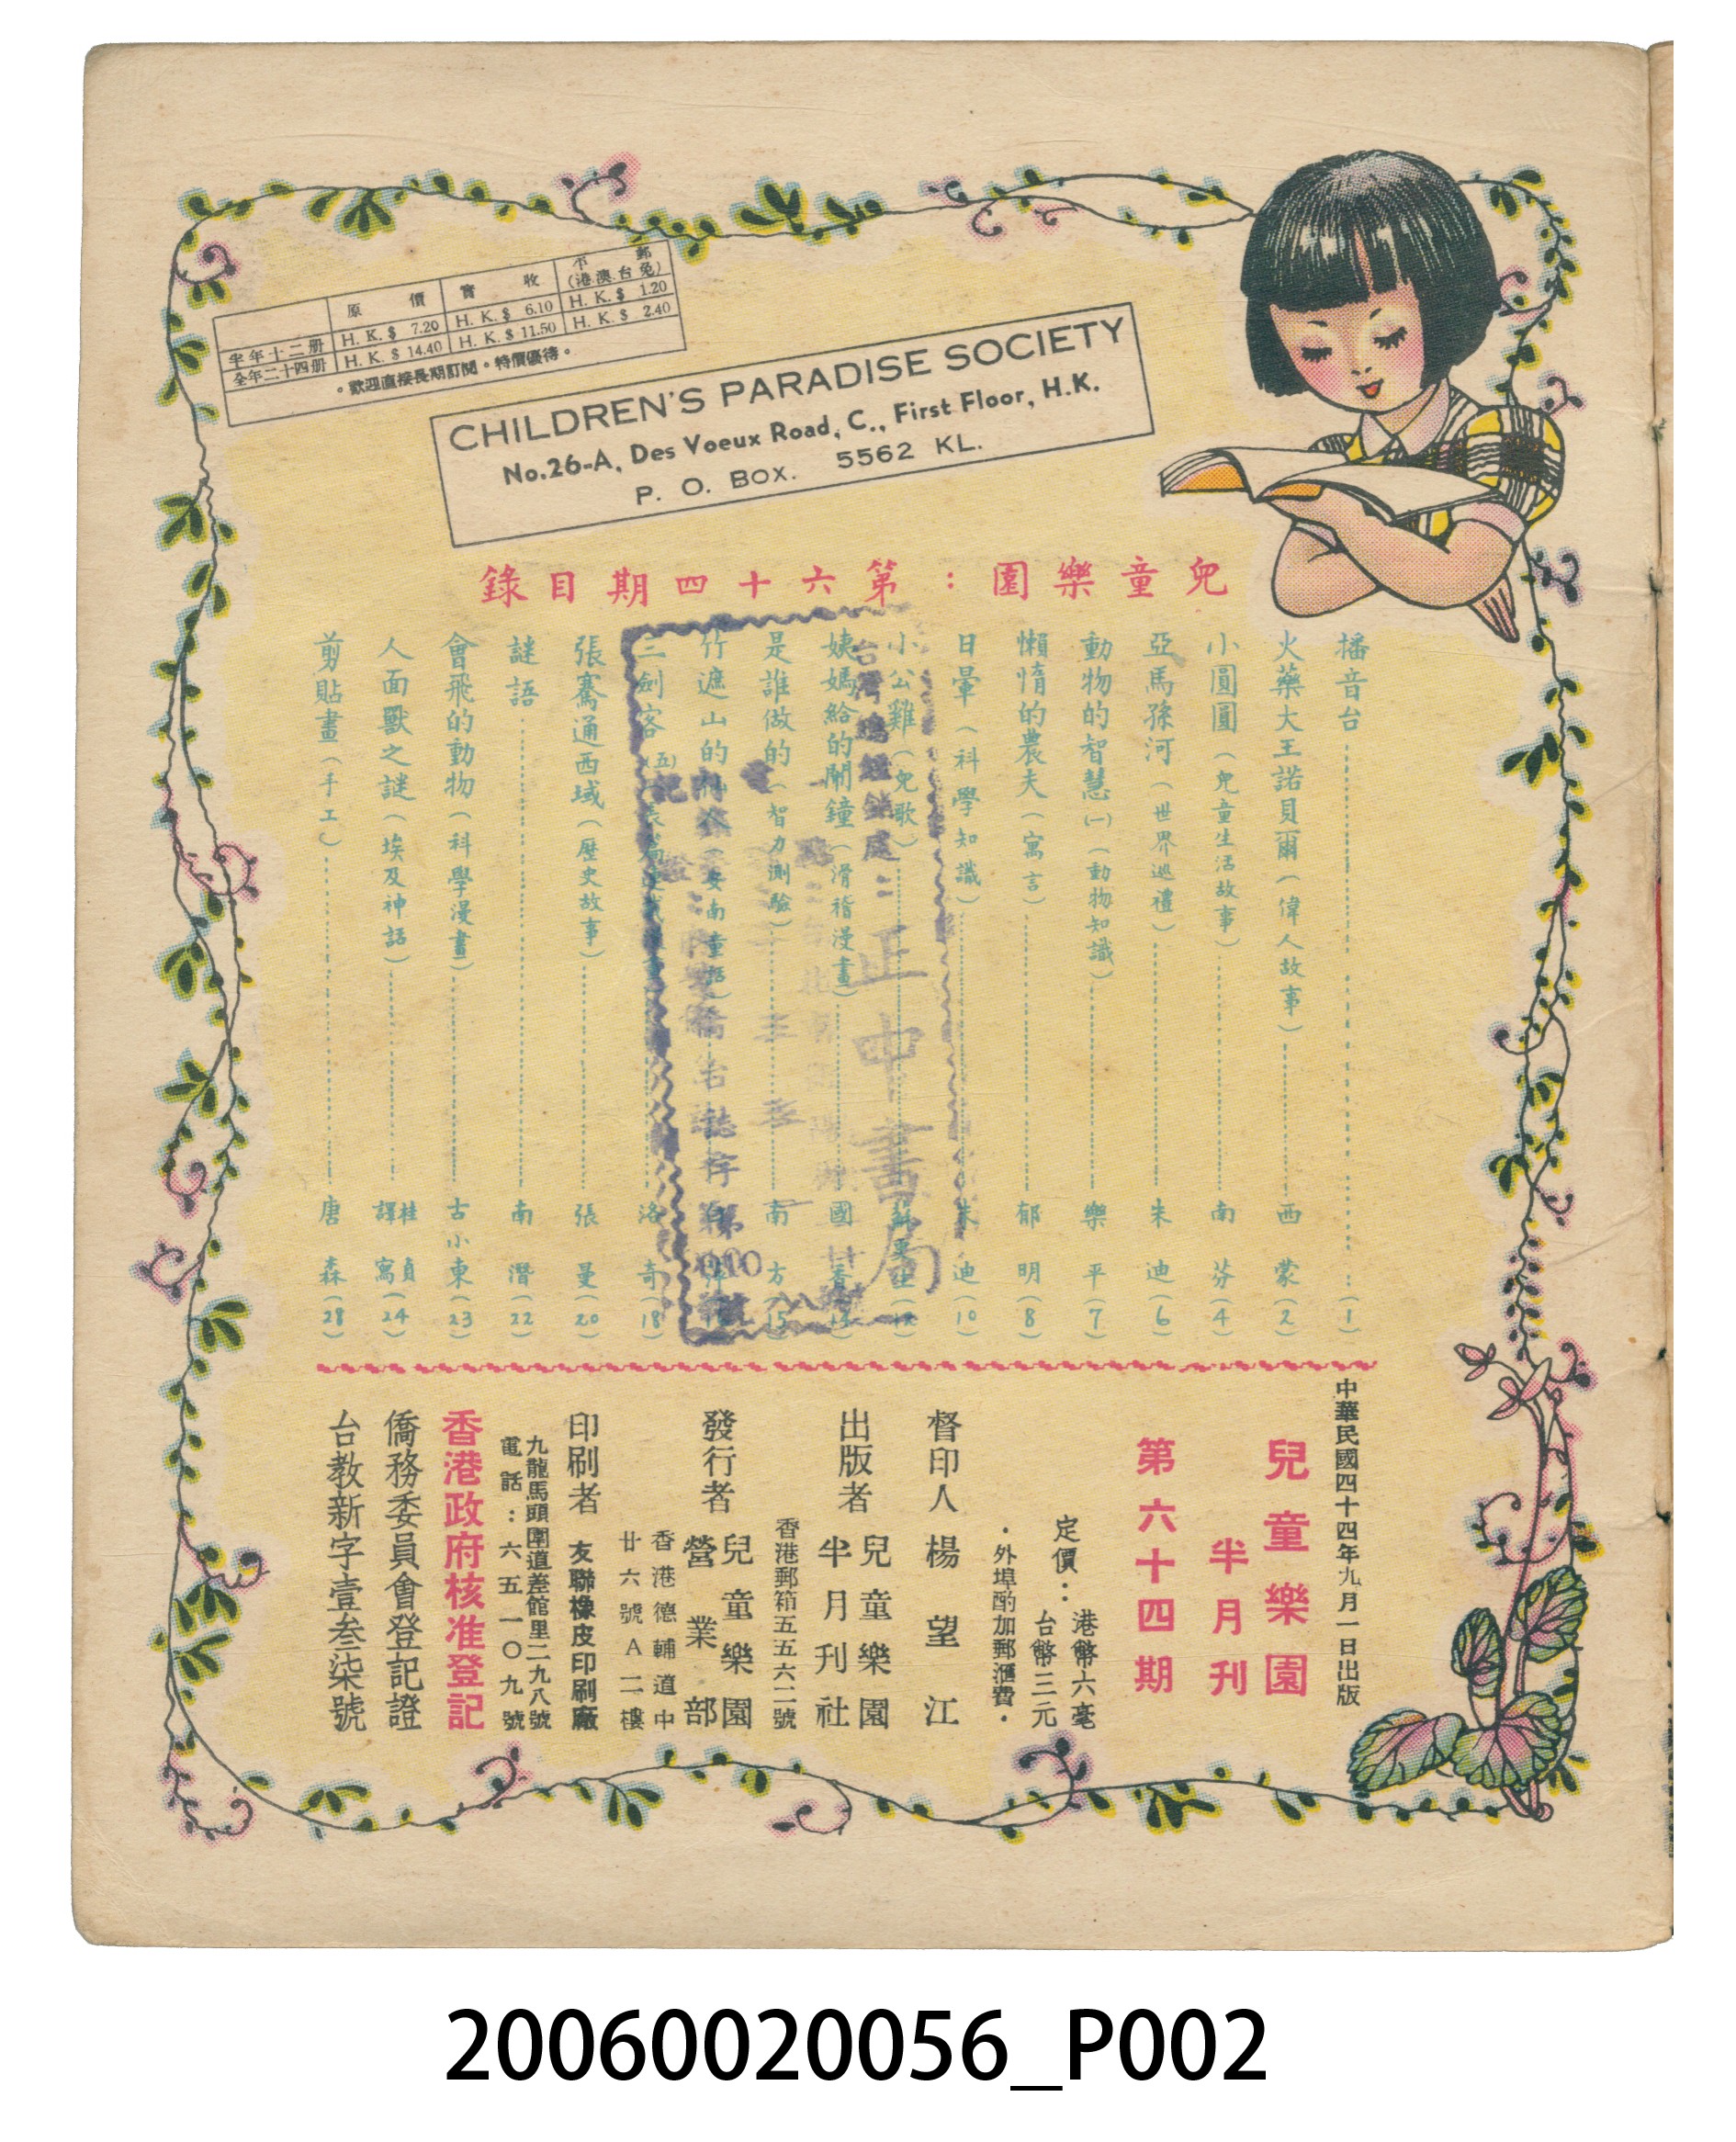 原價 實收 郵(港澳台免)
半年十二册 H. K. $ 7.20 H. K. $ 6.10 H. K. $ 1.20
全年二十四册 H. K. $ 14.40 H. K. $ 11.50 H. K. $ 2.40
。歡迎直接長期訂閱。特價優待。
CHILDREN'S PARADISE SOCIETY
No.26-A, Des Voeux Road, C., First Floor, H.K.
P. O. BOX. 5562 KL.
兒童樂園:第六十四期目錄
播音台 (1)
火藥大王諾貝爾(偉人故事) 西蒙(2)
小圓圓(兒童生活故事) 南芬(4)
亞馬孫河(世界巡禮) 朱迪(6)
動物的智慧(一)(動物知識) 樂平(7)
懶惰的農夫(寓言) 郁明(8)
日暈(科學知識) 朱迪(10)
小公雞(兒歌)
姨媽給的鬧鐘(滑稽漫畫)
是誰做的(智力測驗) 南方(15)
竹遮山的(安南童話)
三劍客(五) 洛奇(18)
張騫通西域(歷史故事) 張曼(20)
謎語 南潛(22)
會飛的動物(科學漫畫) 古小東(23)
人面獸之謎(埃及神話) 桂貞寓譯(24)
剪貼畫(手工) 唐森(28)
台灣總經銷處:正中書局
中華民國四十四年九月一日出版
兒童樂園
半月刊
第六十四期
定價:港幣六毫
台幣三元
·外埠酌加郵滙費·
督印人 楊望江
出版者 兒童樂園半月刊社
香港郵箱五五六二號
發行者 兒童樂園營業部
香港德輔道中
廿六號A二樓
印刷者 友聯橡皮印刷廠
九龍馬頭圍道差館里二九八號
電話:六五一〇九號
香港政府核准登記
僑務委員會登記證
台教新字壹叁柒號
20060020056_P002